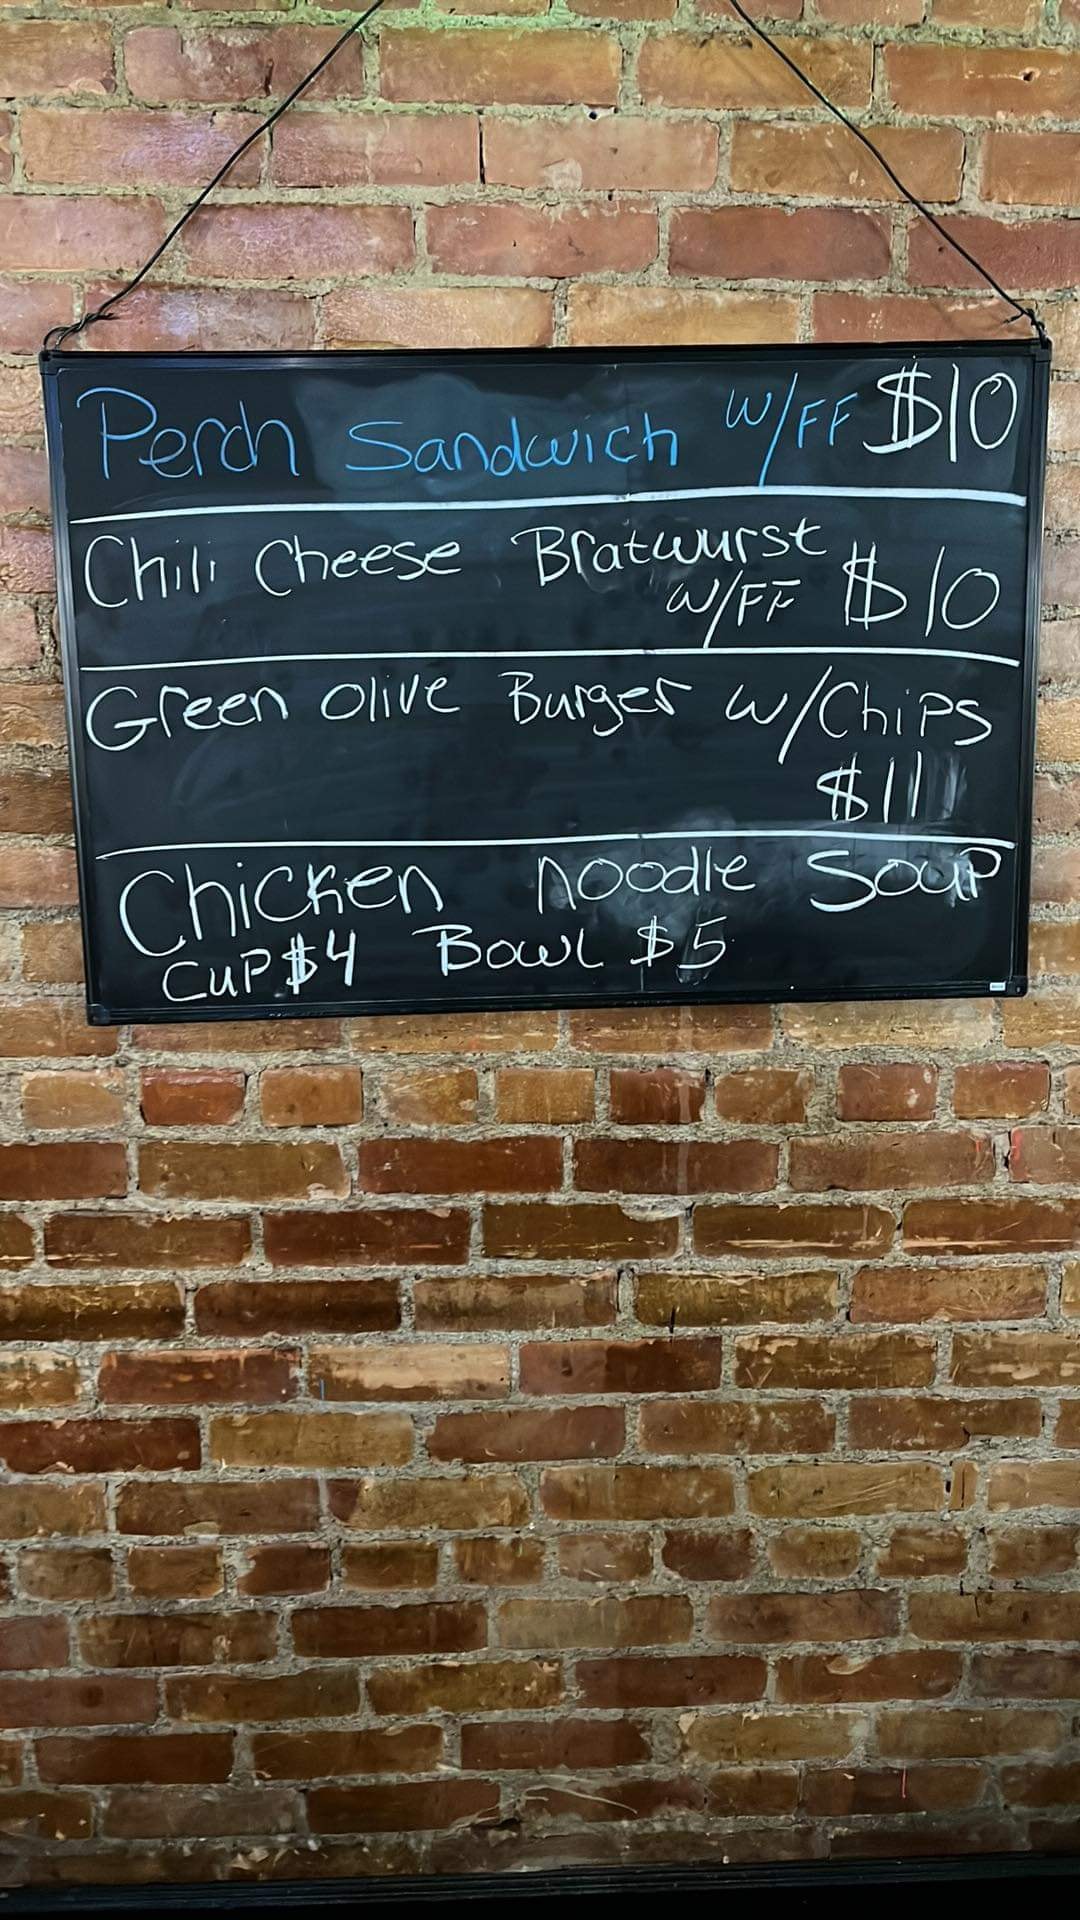 Perch Sandwich w/FF $10
Chili Cheese Bratwurst
w/FF $10
Green Olive Burger w/Chips
$11
Chicken Noodle Soup
Cup $4 Bowl $5